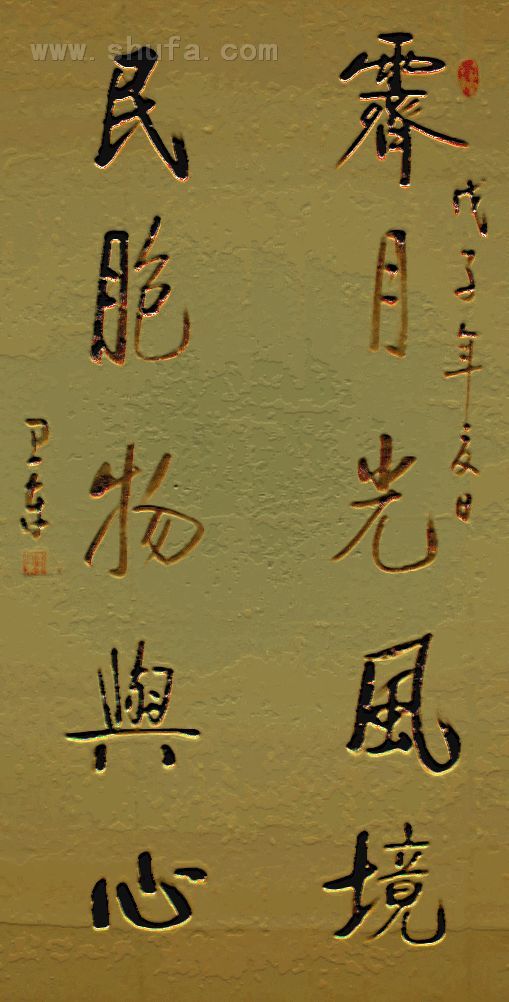 www.shufa.com
戊子年夏日
霽月光風境
民胞物與心
卫东